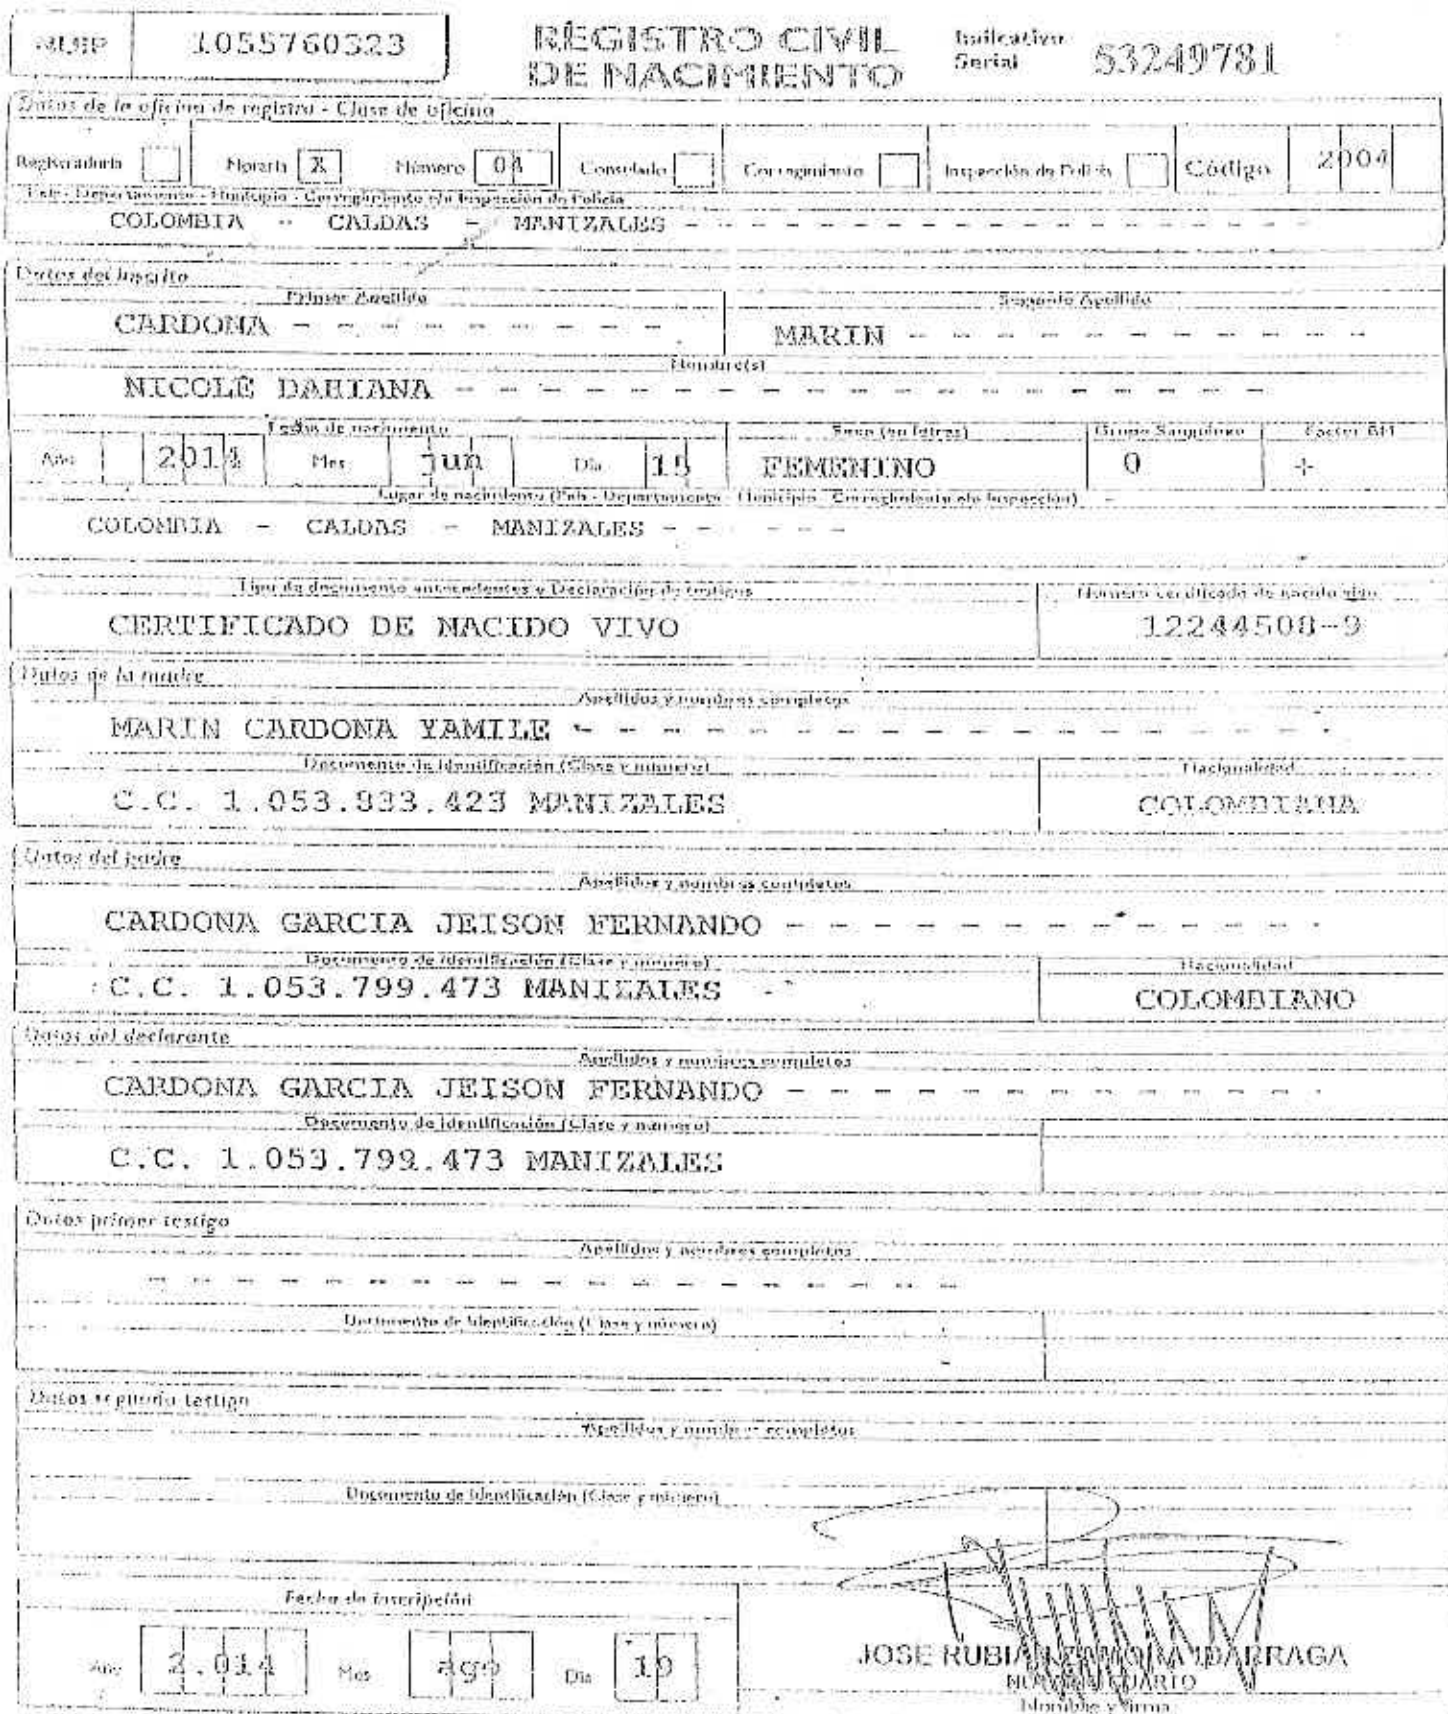 NUIP 1055760323 REGISTRO CIVIL DE NACIMIENTO Indicativo Serial 53249781
Datos de la oficina de registro - Clase de oficina
Registraduría Notaría X Número 04 Consulado Corregimiento Inspección de Policía Código 2004
País - Departamento - Municipio - Corregimiento e/o Inspección de Policía
COLOMBIA - CALDAS - MANIZALES - - - - - - - - - - - - - - -
Datos del inscrito
Primer Apellido Segundo Apellido
CARDONA - - - - - - - - - MARIN - - - - - - - - - - -
Nombre(s)
NICOLE DAHIANA - - - - - - - - - - - - - - - - - - -
Fecha de nacimiento Sexo (en letras) Grupo Sanguíneo Factor RH
Año 2014 Mes jun Día 15 FEMENINO O +
Lugar de nacimiento (País - Departamento - Municipio - Corregimiento e/o Inspección)
COLOMBIA - CALDAS - MANIZALES - - - - - -
Tipo de documento antecedentes o Declaración de testigos Número certificado de nacido vivo
CERTIFICADO DE NACIDO VIVO 12244508-9
Datos de la madre
Apellidos y nombres completos
MARIN CARDONA YAMILE - - - - - - - - - - - - - - - - -
Documento de identificación (Clase y número) Nacionalidad
C.C. 1.053.833.423 MANIZALES COLOMBIANA
Datos del padre
Apellidos y nombres completos
CARDONA GARCIA JEISON FERNANDO - - - - - - - - - - - - -
Documento de identificación (Clase y número) Nacionalidad
C.C. 1.053.799.473 MANIZALES COLOMBIANO
Datos del declarante
Apellidos y nombres completos
CARDONA GARCIA JEISON FERNANDO - - - - - - - - - - - - -
Documento de identificación (Clase y número)
C.C. 1.053.799.473 MANIZALES
Datos primer testigo
Apellidos y nombres completos
- - - - - - - - - - - - - - - - - - -
Documento de identificación (Clase y número)
Datos segundo testigo
Apellidos y nombres completos
Documento de identificación (Clase y número)
Fecha de inscripción
Año 2.014 Mes ago Día 19
JOSE RUBIAN ZAMORA IDARRAGA
NOTARIO CUARTO
Nombre y firma